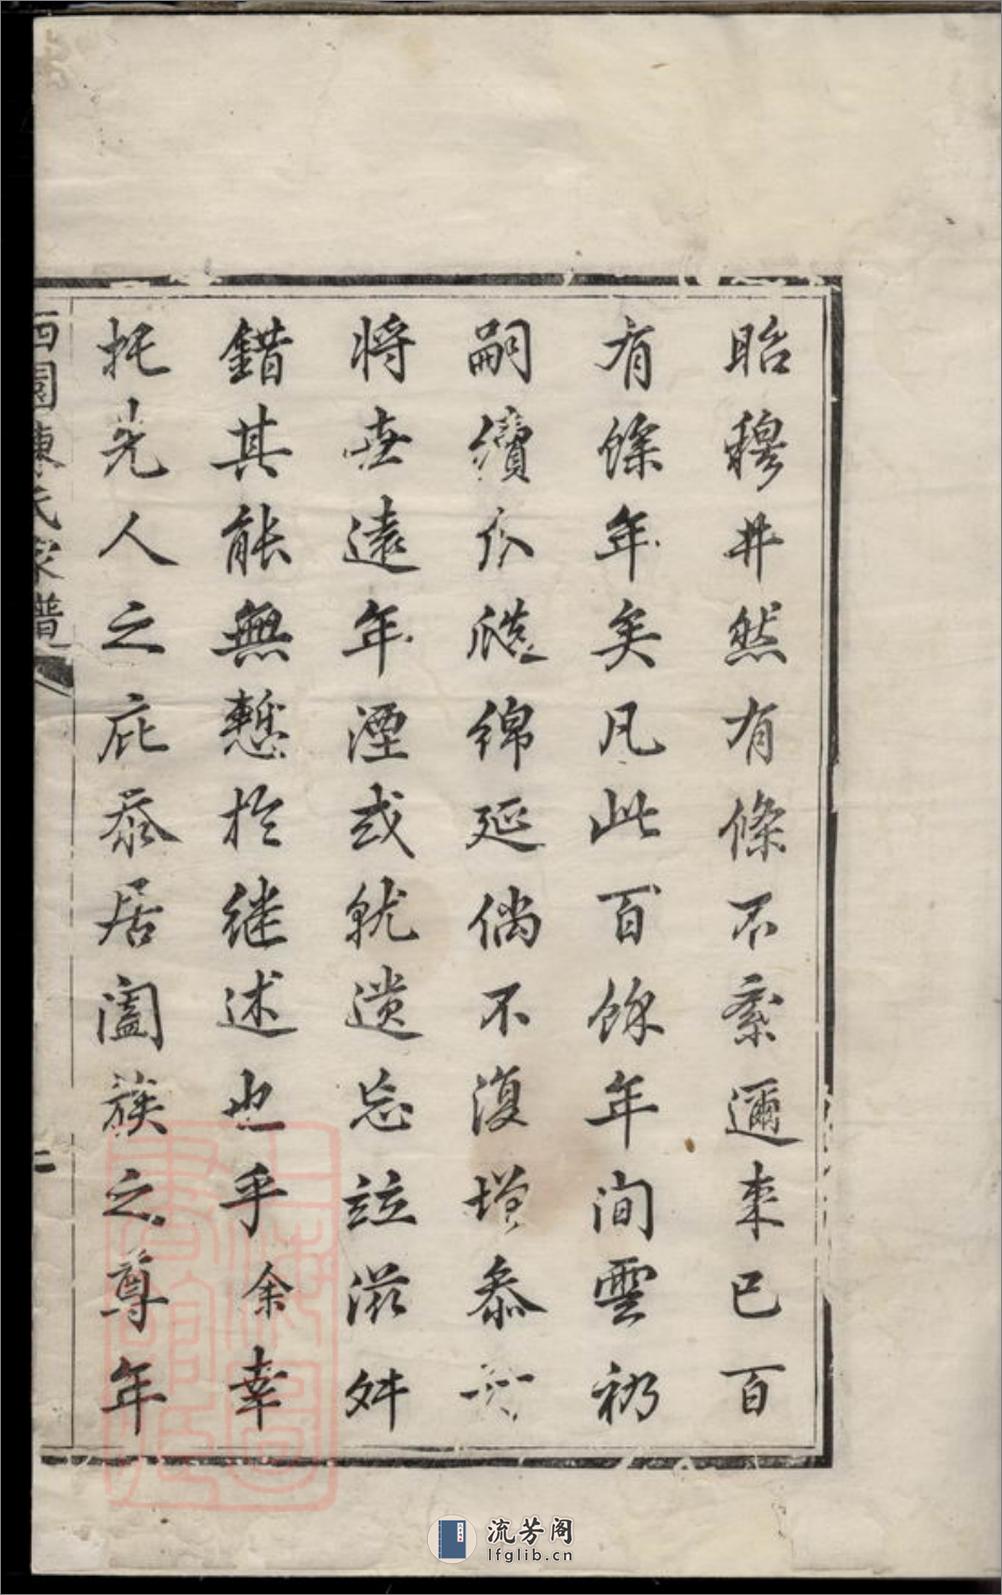 昭穆井然有條不紊邇來已百
有餘年矣凡此百餘年間雲礽
嗣續瓜瓞綿延倘不復增忝
將世遠年湮或就遺忘訛滋舛
錯其能無慙於继述也乎余幸
托先人之庇忝居闔族之尊年
西園陳氏家譜
二
上海圖書館藏
流芳阁
lfglib.cn